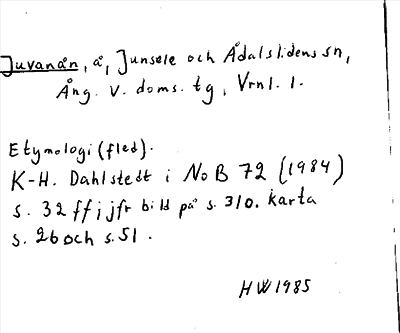 Juvanån, å, Junsele och Ådalslidens sn,
Ång. V. doms. tg, Vrnl. l.
Etymologi (fled).
K-H. Dahlstedt i NoB 72 (1984)
s. 32 ff; jfr bild på s. 310. karta
s. 26 och s. 51.
HW 1985